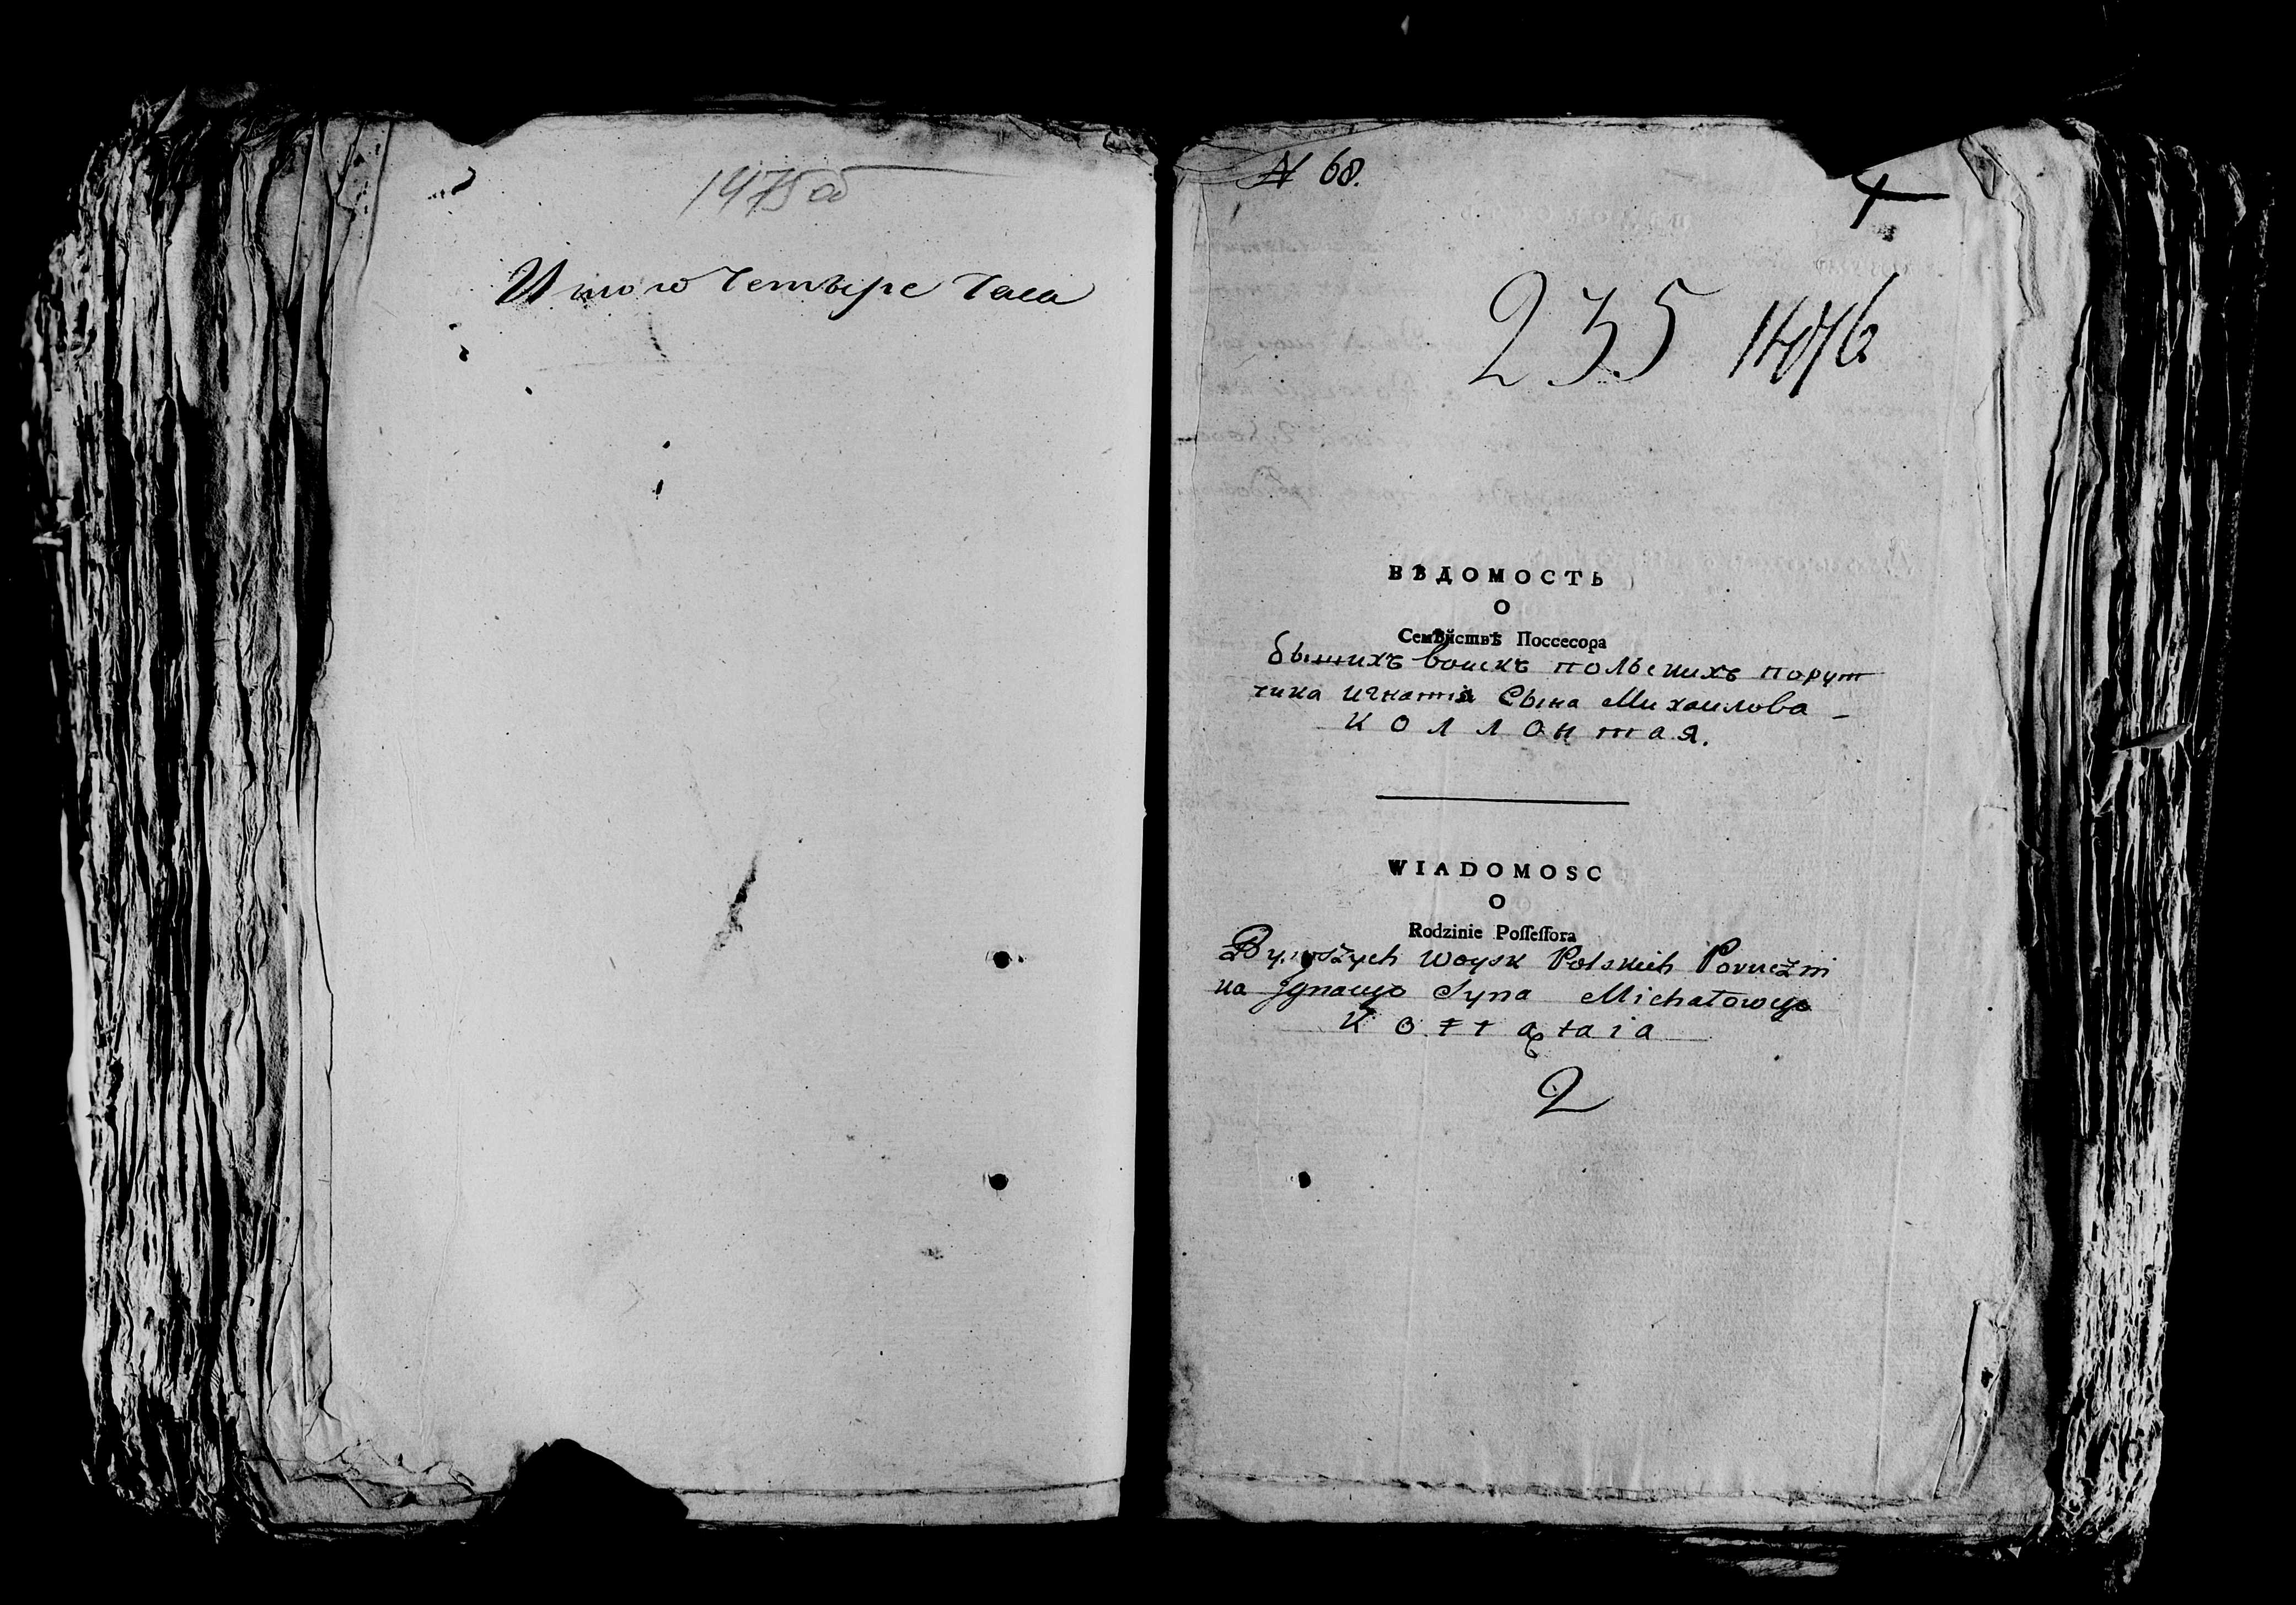 1475об
Итого Четыре Часа
N 68.
235 1476
ВѢДОМОСТЬ
О
Семѣйствѣ Поссесора
бышихъ воискъ польскихъ порут
чика игнатія Сына Михаилова
Коллонтая.
WIADOMOSC
O
Rodzinie Poſſeſſora
Bywszych Woysk Polskich Porucżni
ka Jgnacyo Syna Michałowego
Kołłątaia
2